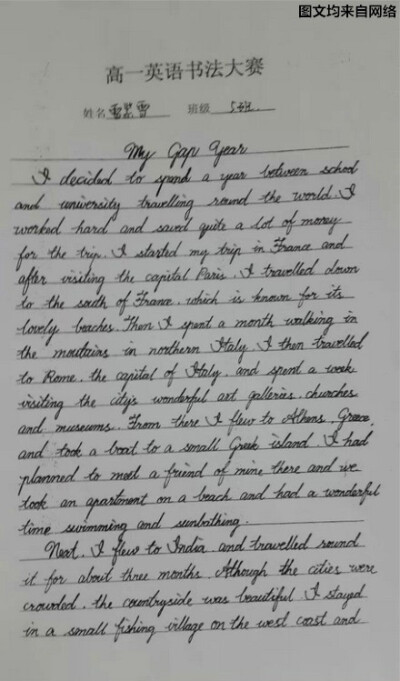 图文均来自网络
高一英语书法大赛
姓名 雪 班级 5班.
My Gap Year
I decided to spend a year between school
and university travelling round the world. I
worked hard and saved quite a lot of money
for the trip. I started my trip in France and
after visiting the capital Paris. I travelled down
to the south of France. which is known for its
lovely beaches. Then I spent a month walking in
the mountains in northern Italy. I then travelled
to Rome. the capital of Italy. and spent a week
visiting the city's wonderful art galleries. churches
and museums. From there I flew to Athens. Greece.
and took a boat to a small Greek island. I had
planned to meet a friend of mine there and we
took an apartment on a beach and had a wonderful
time swimming and sunbathing.
Next. I flew to India and travelled round
it for about three months. Although the cities were
crowded. the countryside was beautiful. I stayed
in a small fishing village on the west coast and